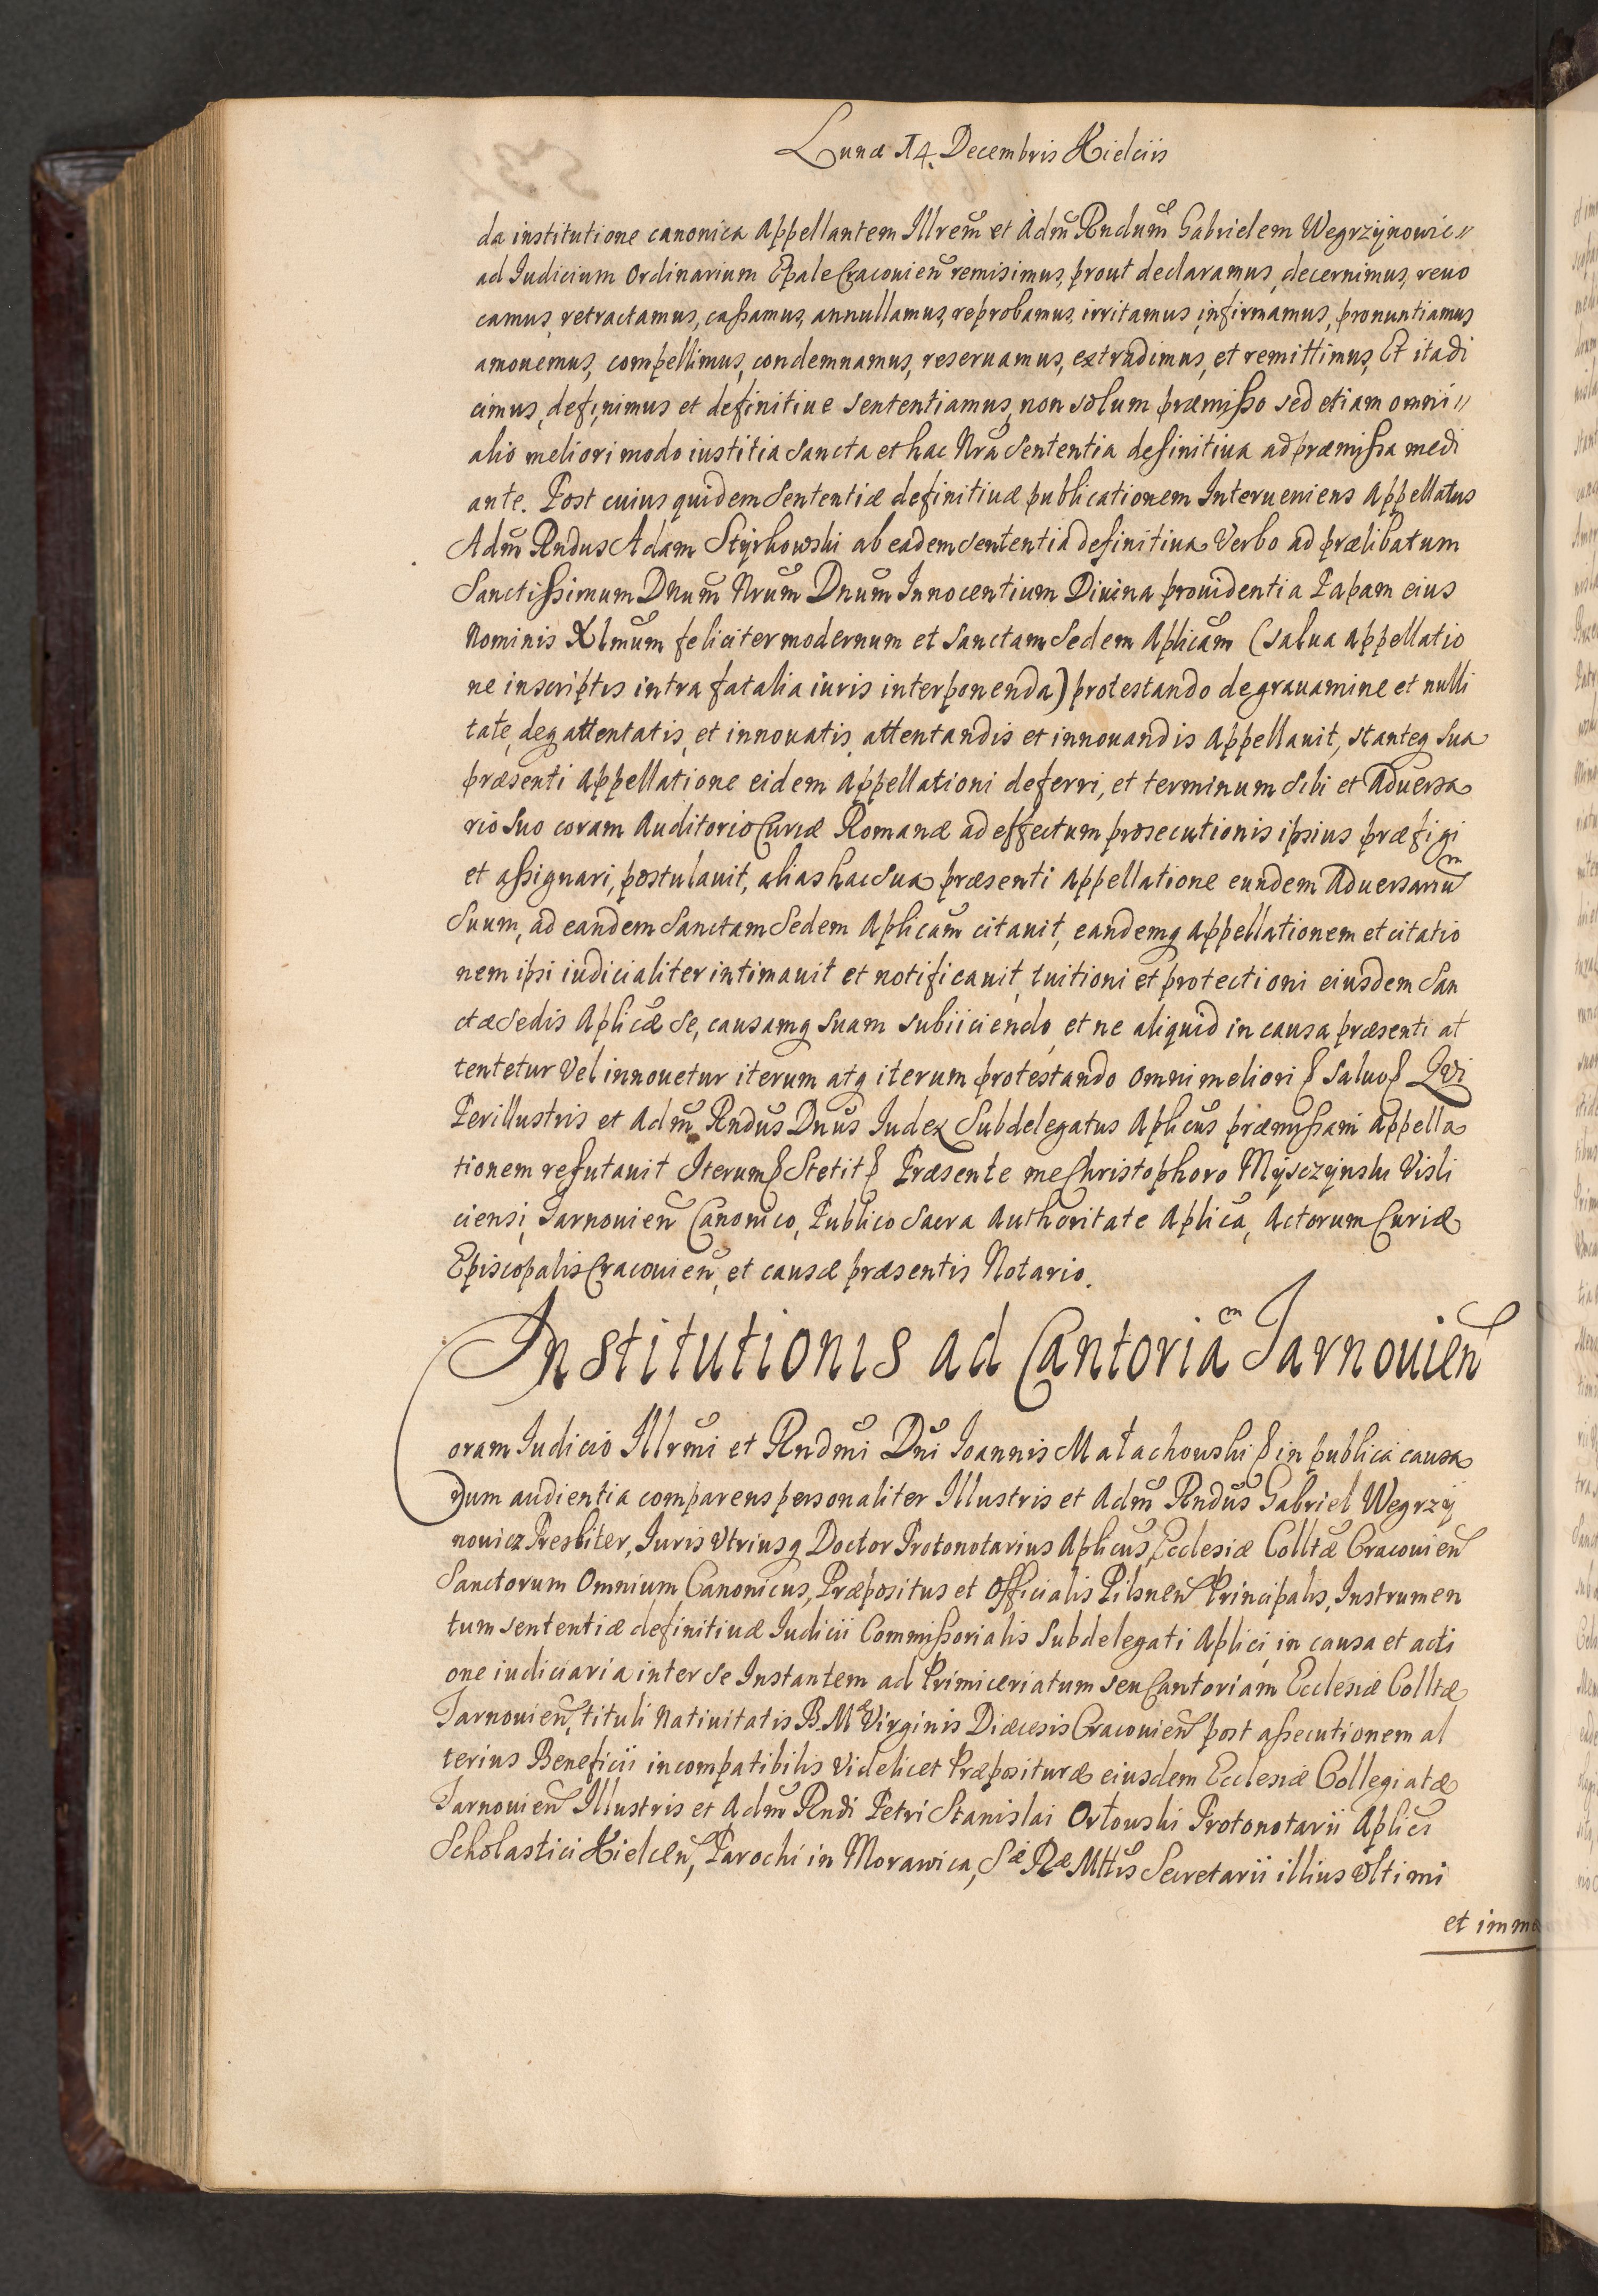 Lunæ 14. Decembris Kielciis
da institutione canonica Appellantem Illrem et Adm Rndum Gabrielem Wegrzÿnowic〃
ad Iudicium Ordinarium Epale Cracouien remisimus, prout declaramus, decernimus, reuo
camus, retractamus, caßamus, annullamus, reprobamus, irritamus, infirmamus, pronuntiamus
amouemus, compellimus, condemnamus, reseruamus, extrudimus, et remittimus, Et ita di
cimus, definimus et definitiue sententiamus, non solum præmißo sed etiam omni〃
alio meliori modo iustitia sancta et hac Nra sententia definitiua ad præmißa medi
ante. Post cuius quidem Sententiæ definitiuæ publicationem Interueniens Appellatus
Adm Rndus Adam Stÿrkowski ab eadem sententia definitiua Verbo ad prælibatum
Sanctißimum Dnum Nrum Dnum Innocentium Diuina prouidentia Papam eius
Nominis XImum feliciter modernum et Sanctam Sedem Aplicam (salua appellatio
ne in scriptis intra fatalia iuris interponenda) protestando de grauamine et nulli
tate, deq attentatis, et innouatis, attentandis et innouandis Appellauit, stanteq sua
præsenti Appellatione eidem Appellationi deferri, et terminum sibi et Aduersa
rio suo coram Auditorio Curiæ Romanæ ad effectum prosecutionis ipsius præfigi
et aßignari, postulauit, alias hac sua præsenti Appellatione eundem Aduersariu͏̃
Suum, ad eandem Sanctam Sedem Aplicam citauit, eandemq Appellationem et citatio
nem ipsi iudicialiter intimauit et notificauit, tuitioni et protectioni eiusdem San
ctæ Sedis Aplicæ se, causamq suam subiiciendo, et ne aliquid in causa præsenti at
tentetur Vel innouetur iterum atq iterum protestando omni meliori ꝑ saluoꝑ Qvi
Perillustris et Adm Rndus Dnus Iudex Subdelegatus Aplicus præmißam Appella
tionem refutauit Iterumꝑ Stetitꝑ Præsente me Christophoro Mÿsczÿnski Visli
ciensi, Tarnouien Canonico, Publico Sacra Authoritate Aplica, Actorum Curiæ
Episcopalis Cracouien, et causæ præsentis Notario.
Institutionis ad Cantoriam Tarnouien
Coram Iudicio Illrmi et Rndmi Dni Ioannis Małachowski ꝑ in publica causa
rum audientia comparens personaliter Illustris et Adm Rndus Gabriel Wegrzÿ
nouicz Presbiter, Iuris Vtriusq Doctor Protonotarius Aplicus, Ecclesiæ Colltæ Cracouien
Sanctorum Omnium Canonicus, Præpositus et Officialis Pilsnen Principalis, Instrumen
tum sententiæ definitiuæ Iudicii Commißorialis Subdelegati Aplici, in causa et acti
one iudiciaria inter se Instantem ad Primiceriatum seu Cantoriam Ecclesiæ Colltæ
Tarnouien, tituli Natiuitatis B. Mæ Virginis Diæcesis Cracouien post aßecutionem al
terius Beneficii incompatibilis videlicet Præpositturæ eiusdem Ecclesiæ Collegiatæ
Tarnouien Illustris et Adm Rndi Petri Stanislai Orłowski Protonotarii Aplici
Scholastici Kielcen, Parochi in Morawica, Sæ Ræ Mttis Secretarii illius vltimi
et imme